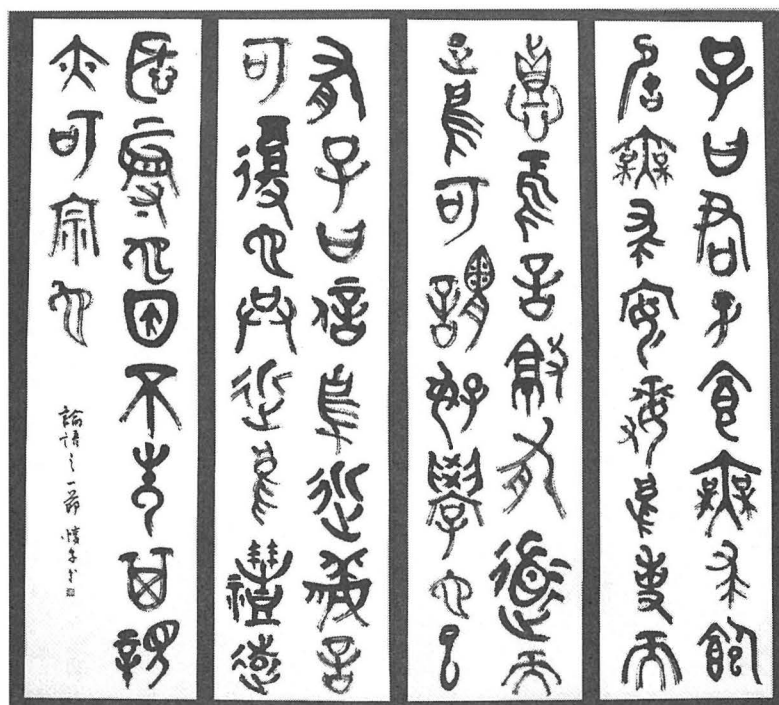 子曰君子食無求飽
居無求安敏於事而
慎於言就有道而
正焉可謂好學也已
有子曰信近於義言
可復也恭近於禮遠
恥辱也因不失其親
亦可宗也
論語之一節